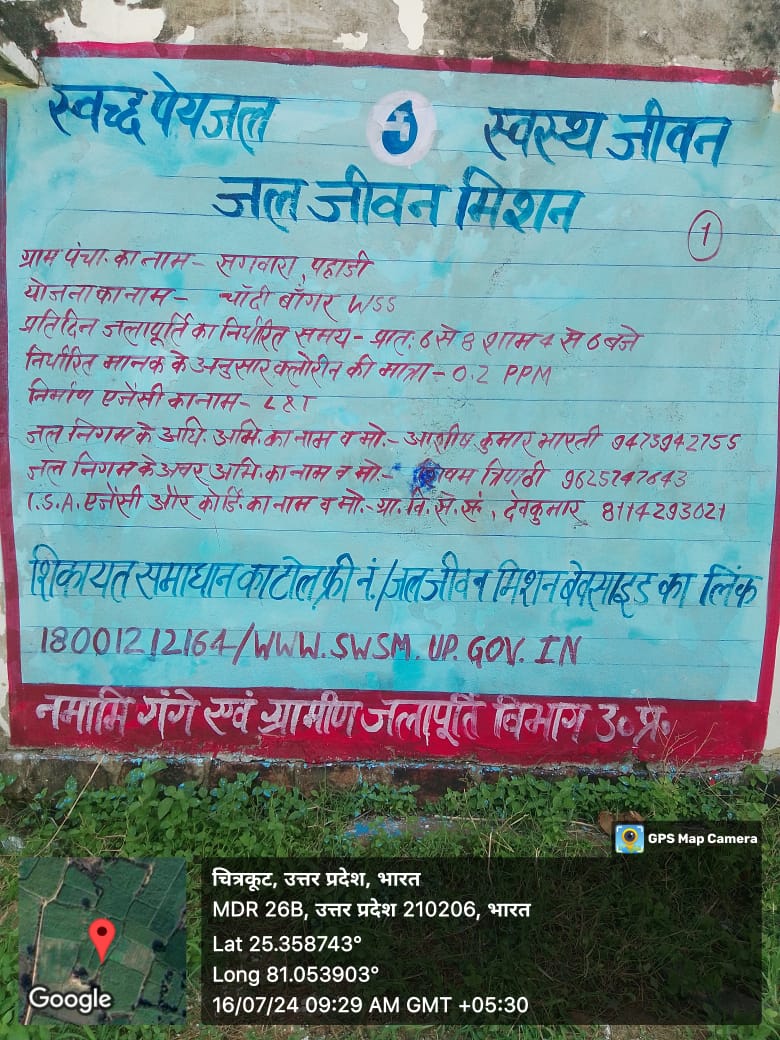 स्वच्छ पेयजल स्वस्थ जीवन
जल जीवन मिशन
1
ग्राम पंचा. का नाम - सगवारा, पहाडी
योजना का नाम - चाँदी बाँगर WSS
प्रतिदिन जलापूर्ति का निर्धारित समय - प्रात: 6 से 8 शाम 4 से 6 बजे
निर्धारित मानक के अनुसार क्लोरीन की मात्रा - 0.2 PPM
निर्माण एजेंसी का नाम - L&T
जल निगम के अधि. अभि. का नाम व मो. - आशीष कुमार भारती 9473942755
जल निगम के अवर अभि. का नाम व मो. - त्रिपाठी 9625747643
I.S.A. एजेंसी और कोर्डि. का नाम व मो. - ग्रा. वि. से. सं., देवकुमार 8114293021
शिकायत समाधान का टोल फ्री नं./जल जीवन मिशन बेवसाइड का लिंक
18001212164/WWW.SWSM.UP.GOV.IN
नमामि गंगे एवं ग्रामीण जलापूर्ति विभाग उ०प्र०
GPS Map Camera
चित्रकूट, उत्तर प्रदेश, भारत
MDR 26B, उत्तर प्रदेश 210206, भारत
Lat 25.358743°
Long 81.053903°
16/07/24 09:29 AM GMT +05:30
Google